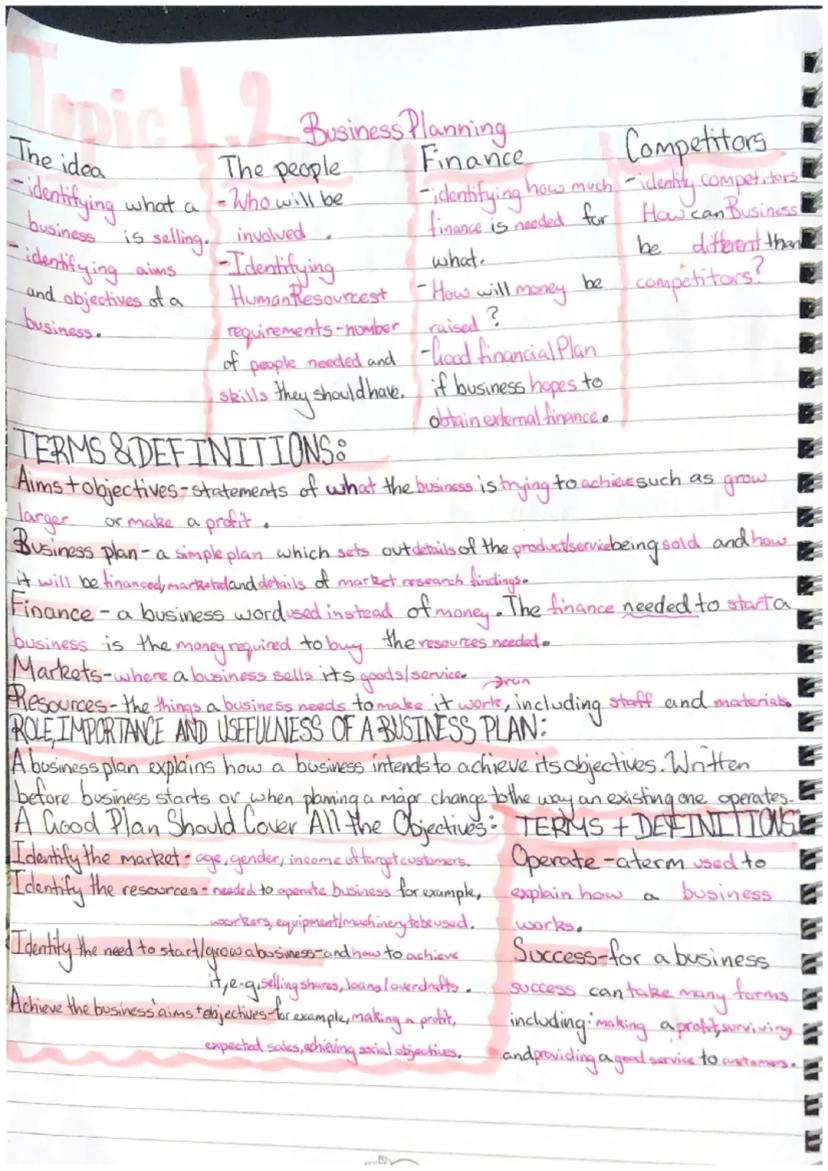 Topic 1.2
Business Planning
The idea
-identifying what a
business is selling.
-identifying aims
and objectives of a
business.
The people
-Who will be
involved.
-Identifying
Human Resourcest
requirements-number
of people needed and
skills they should have.
Finance
-identifying how much
finance is needed for
what.
-How will money be
raised?
-Good financial Plan
if business hopes to
obtain external finance.
Competitors
-identify competitors
How can Business
be different than
competitors?
TERMS & DEFINITIONS:
Aims + objectives - statements of what the business is trying to achieve such as grow
larger or make a profit.
Business plan - a simple plan which sets out details of the product/service being sold and how
it will be financed, marketed and details of market research findings.
Finance - a business word used instead of money. The finance needed to start a
business is the money required to buy the resources needed.
Markets - where a business sells its goods/service.
run
Resources - the things a business needs to make it work, including staff and materials.
ROLE, IMPORTANCE AND USEFULNESS OF A BUSINESS PLAN:
A business plan explains how a business intends to achieve its objectives. Written
before business starts or when planning a major change to the way an existing one operates.
A Good Plan Should Cover All the Objectives:
Identify the market - age, gender, income of target customers.
Identify the resources - needed to operate business for example,
workers, equipment/machinery to be used.
Identify the need to start/grow a business - and how to achieve
it, e.g. selling shares, loans/overdrafts.
Achieve the business' aims + objectives - for example, making a profit,
expected sales, achieving social objectives.
TERMS + DEFINITIONS:
Operate - a term used to
explain how a business
works.
Success - for a business
success can take many forms
including: making a profit, surviving
and providing a good service to customers.